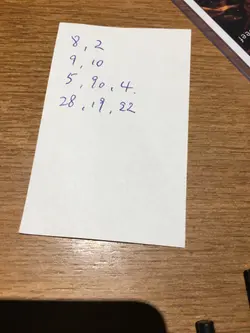 8, 2
9, 10
5, 90, 4.
28, 19, 22